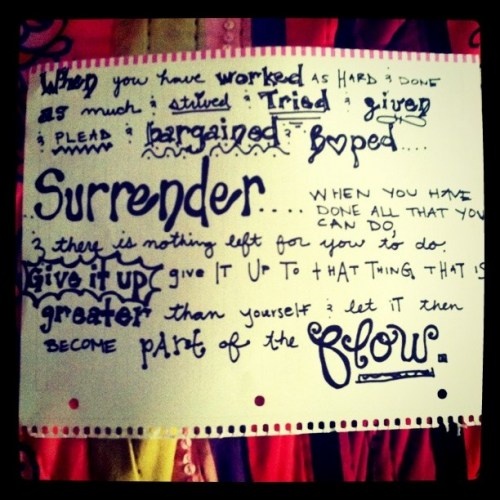 When you have worked AS HARD & DONE
as much & strived & Tried & given
& PLEAD & bargained & hoped....
..Surrender.... WHEN YOU HAVE
DONE ALL THAT YOU
CAN DO,
& there is nothing left for you to do.
Give it up give IT UP TO tHAT THING THAT IS
greater than yourself & let IT then
BECOME pARt of the flow.